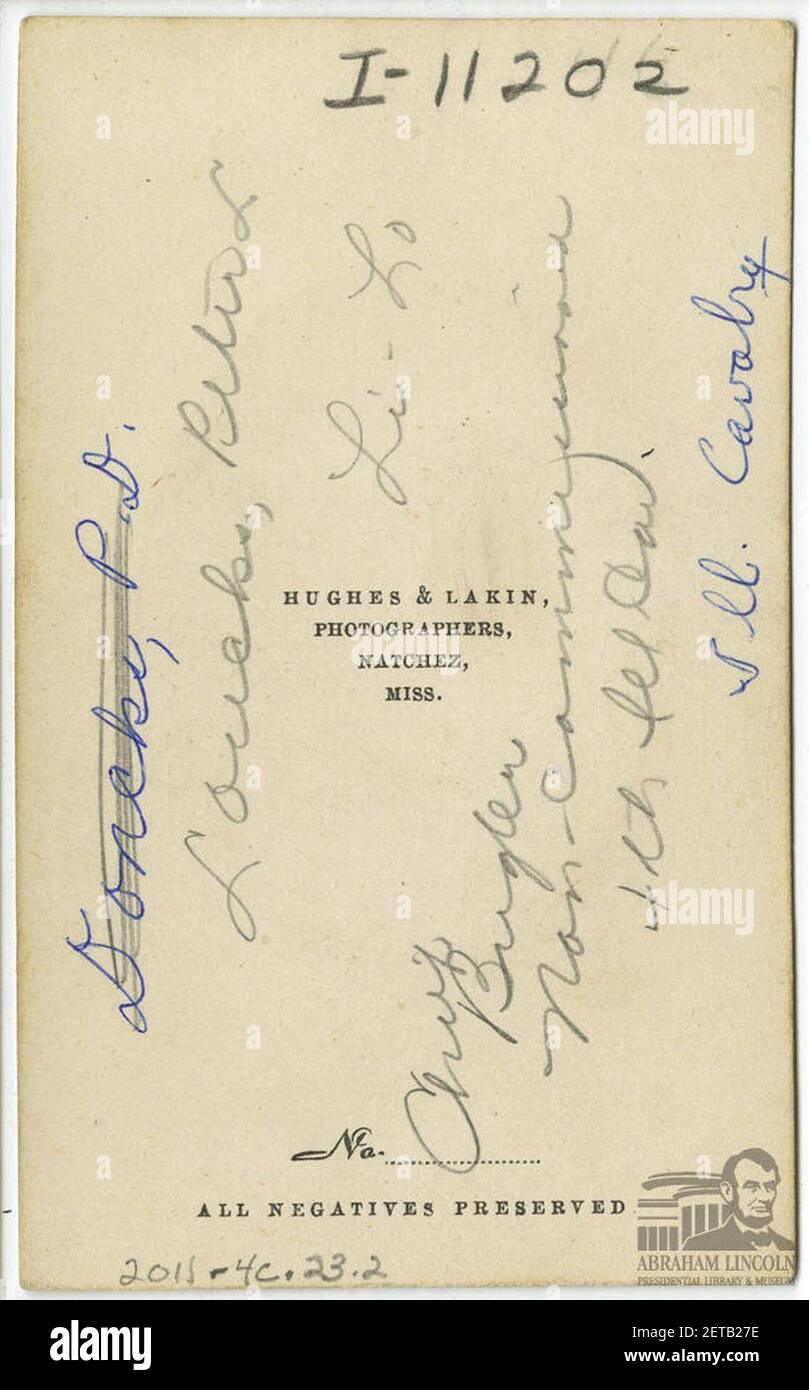 I-11202
Loucks, P.D.
Loucks, Peter L
Li-Lo
HUGHES & LAKIN,
PHOTOGRAPHERS,
NATCHEZ,
MISS.
Chief
Bugler
Non-Commissioned
4th Ill Cav.
Ill. Cavalry
No.
ALL NEGATIVES PRESERVED
2011-4C.23.2
ABRAHAM LINCOLN
PRESIDENTIAL LIBRARY & MUSEUM
alamy
alamy
alamy
alamy
Image ID: 2ETB27E
www.alamy.com